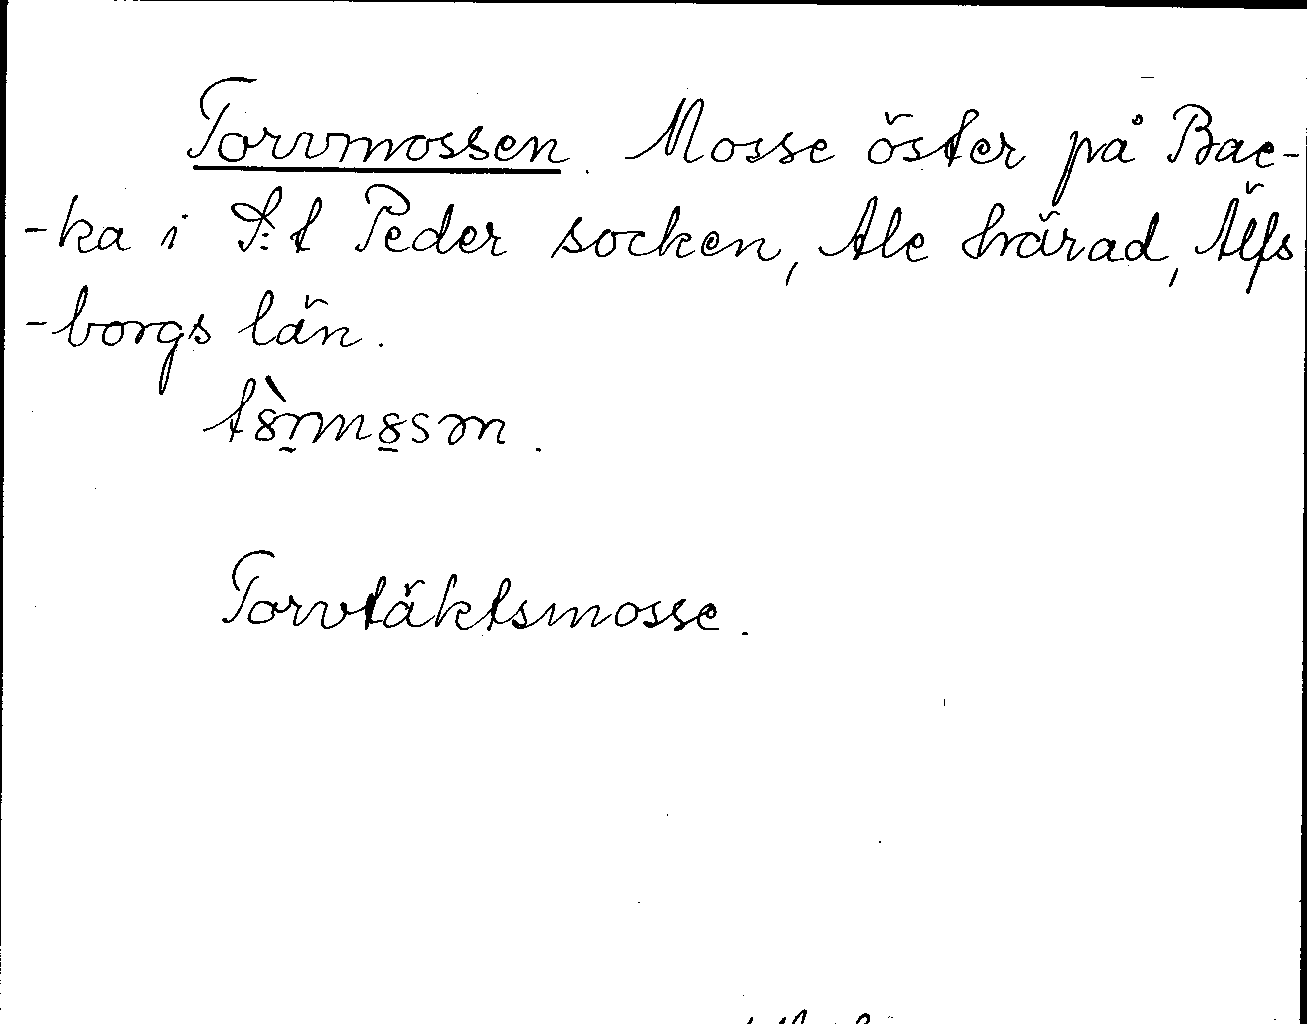 Torvmossen. Mosse öster på Bac-
-ka i S:t Peder socken, Ale härad, Älfs
-borgs län.
Torvtäktsmosse.